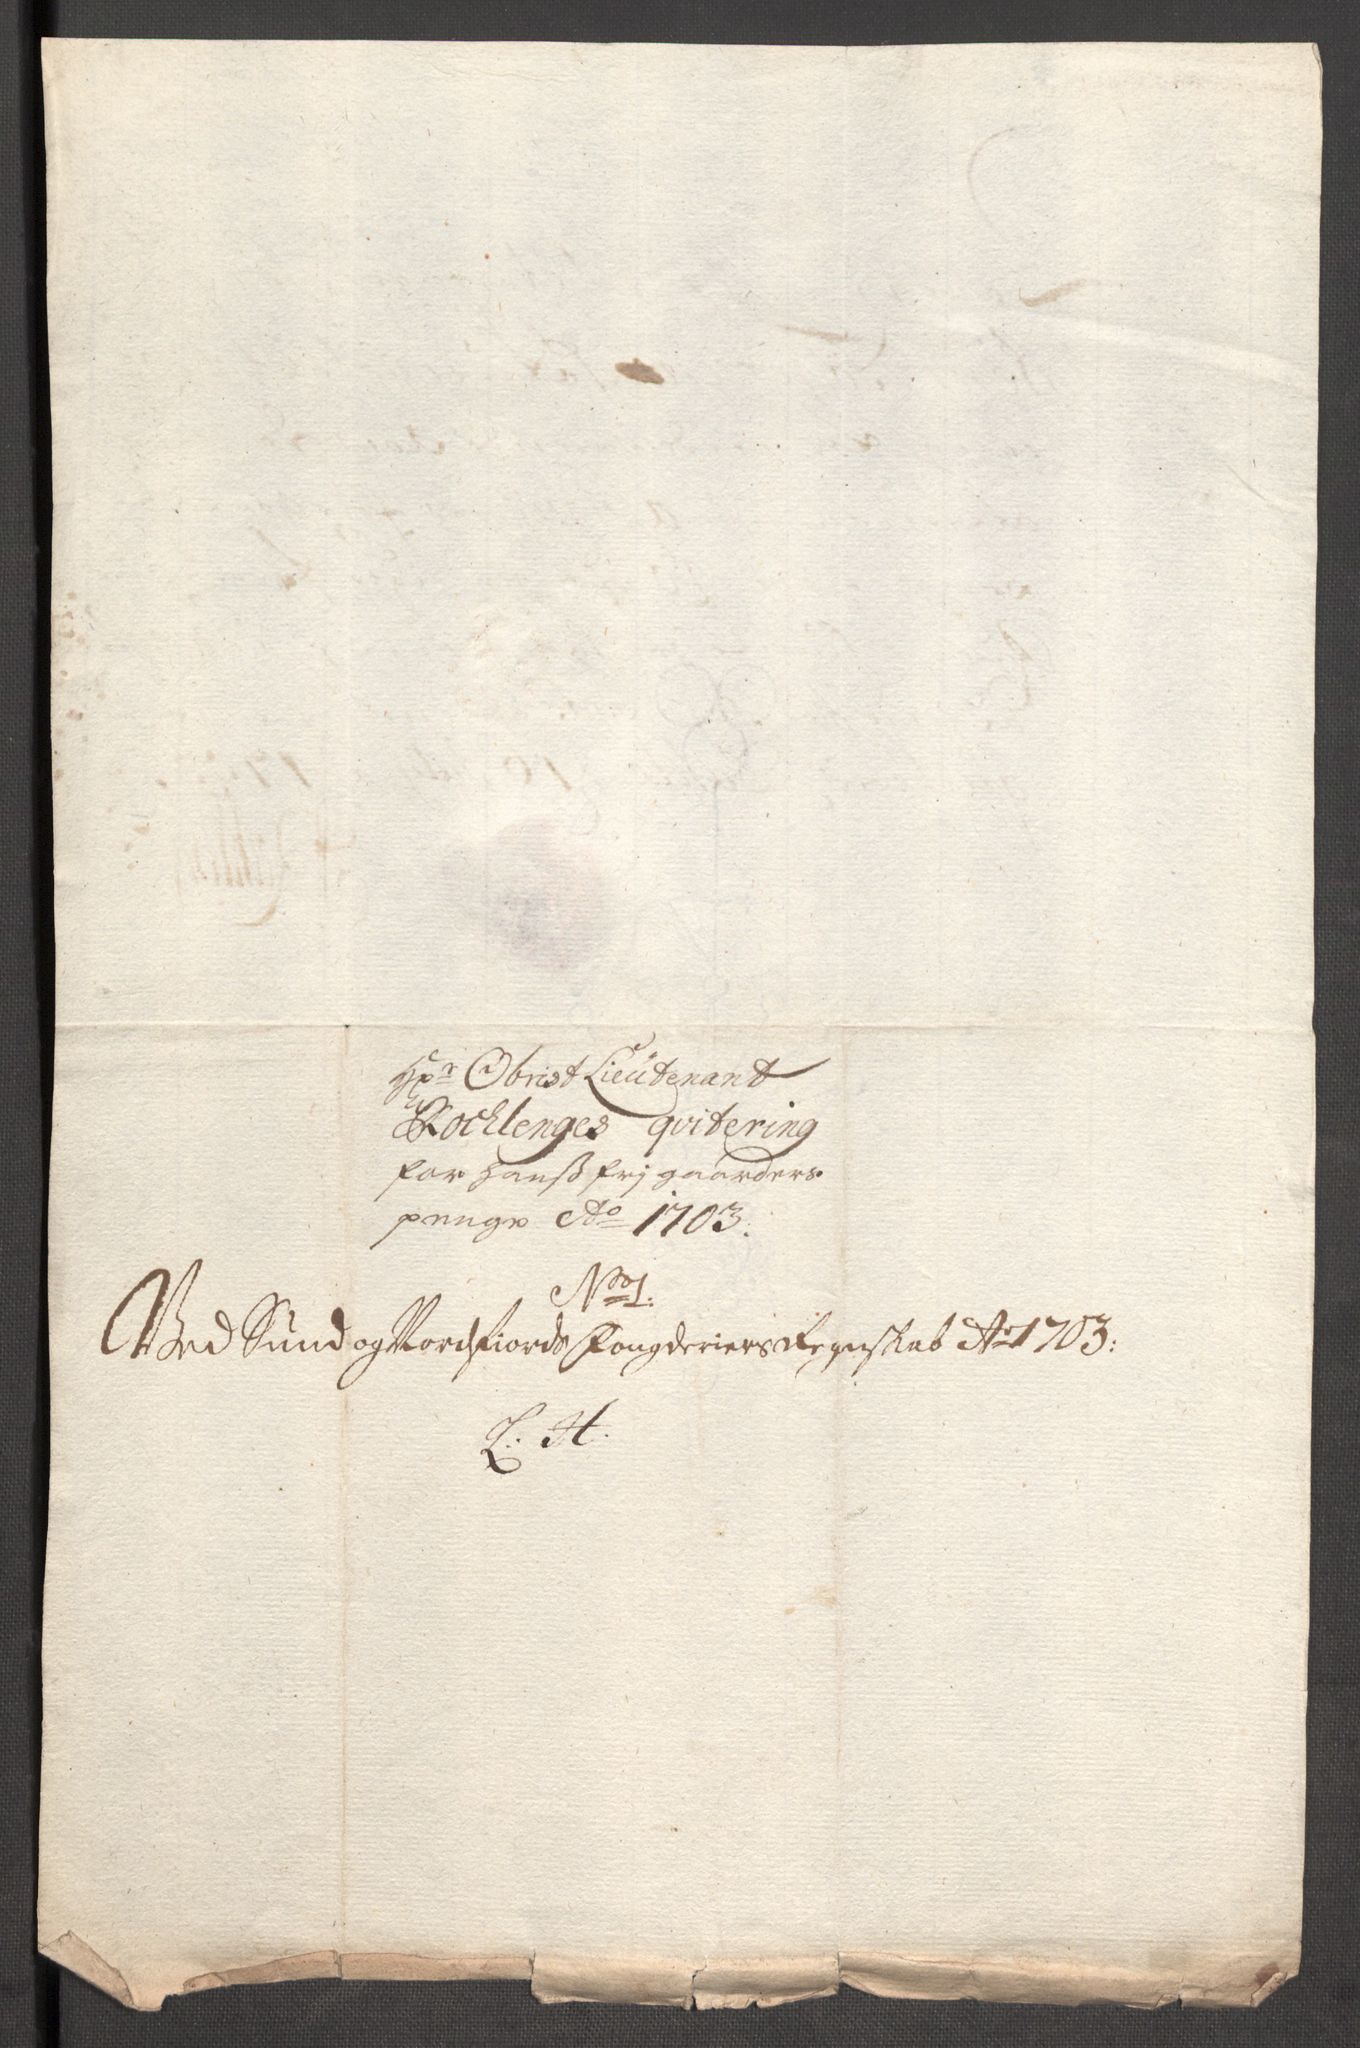 Hr Obrist Lieutenant
Rocklenges qvitering
for hanß frj gaarders
penge Ao 1703.
No 1.
Ved Sund og Nordfiords Fougderiers Regnskab Ao 1703:
L. H.